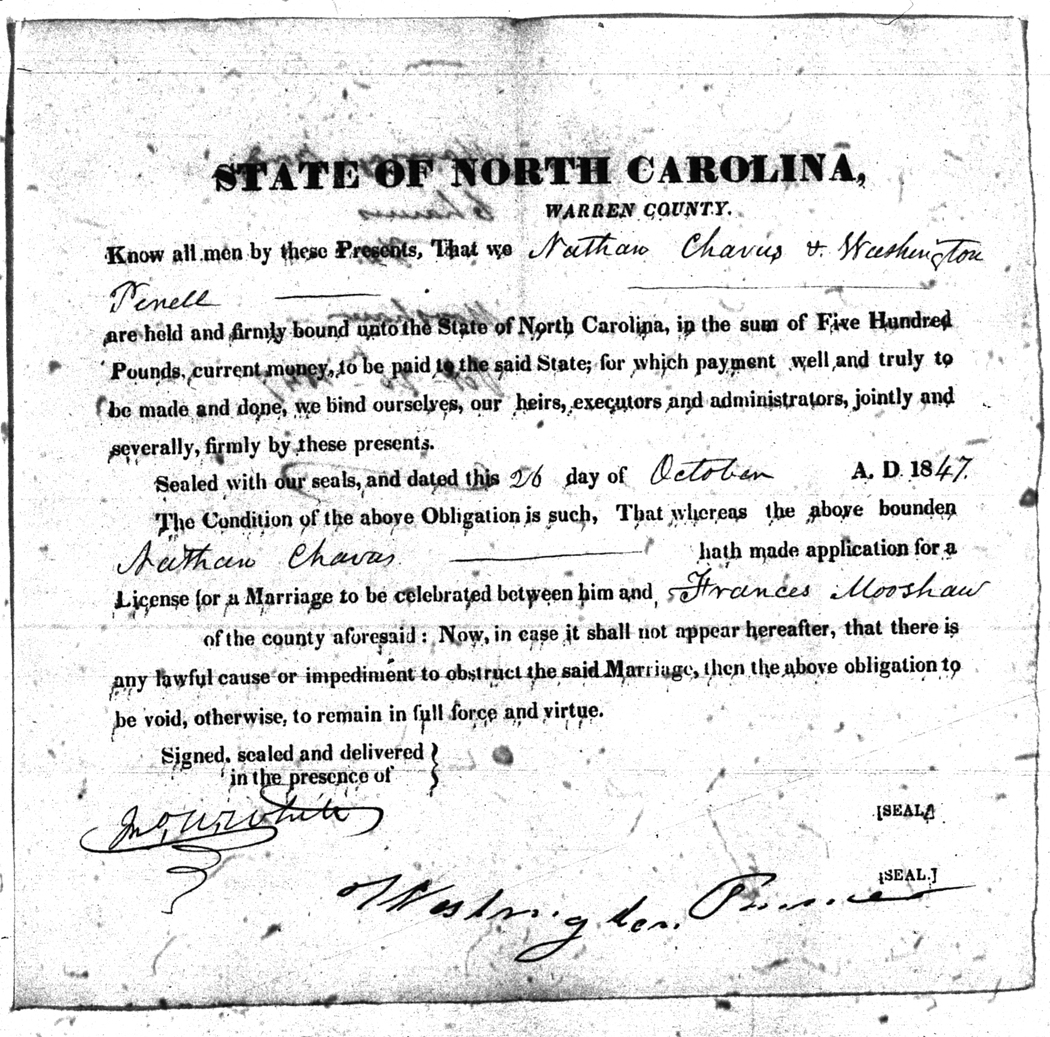 STATE OF NORTH CAROLINA,
WARREN COUNTY.
Know all men by these Presents, That we Nathan Chavus & Washington
Penell
are held and firmly bound unto the State of North Carolina, in the sum of Five Hundred
Pounds, current money, to be paid to the said State; for which payment well and truly to
be made and done, we bind ourselves, our heirs, executors and administrators, jointly and
severally, firmly by these presents.
Sealed with our seals, and dated this 26 day of October A. D. 1847.
The Condition of the above Obligation is such, That whereas the above bounden
Nathan Chavas hath made application for a
License for a Marriage to be celebrated between him and Frances Mooshaw
of the county aforesaid: Now, in case it shall not appear hereafter, that there is
any lawful cause or impediment to obstruct the said Marriage, then the above obligation to
be void, otherwise, to remain in full force and virtue.
Signed, sealed and delivered
in the presence of
Jno. W. White
[SEAL]
[SEAL.]